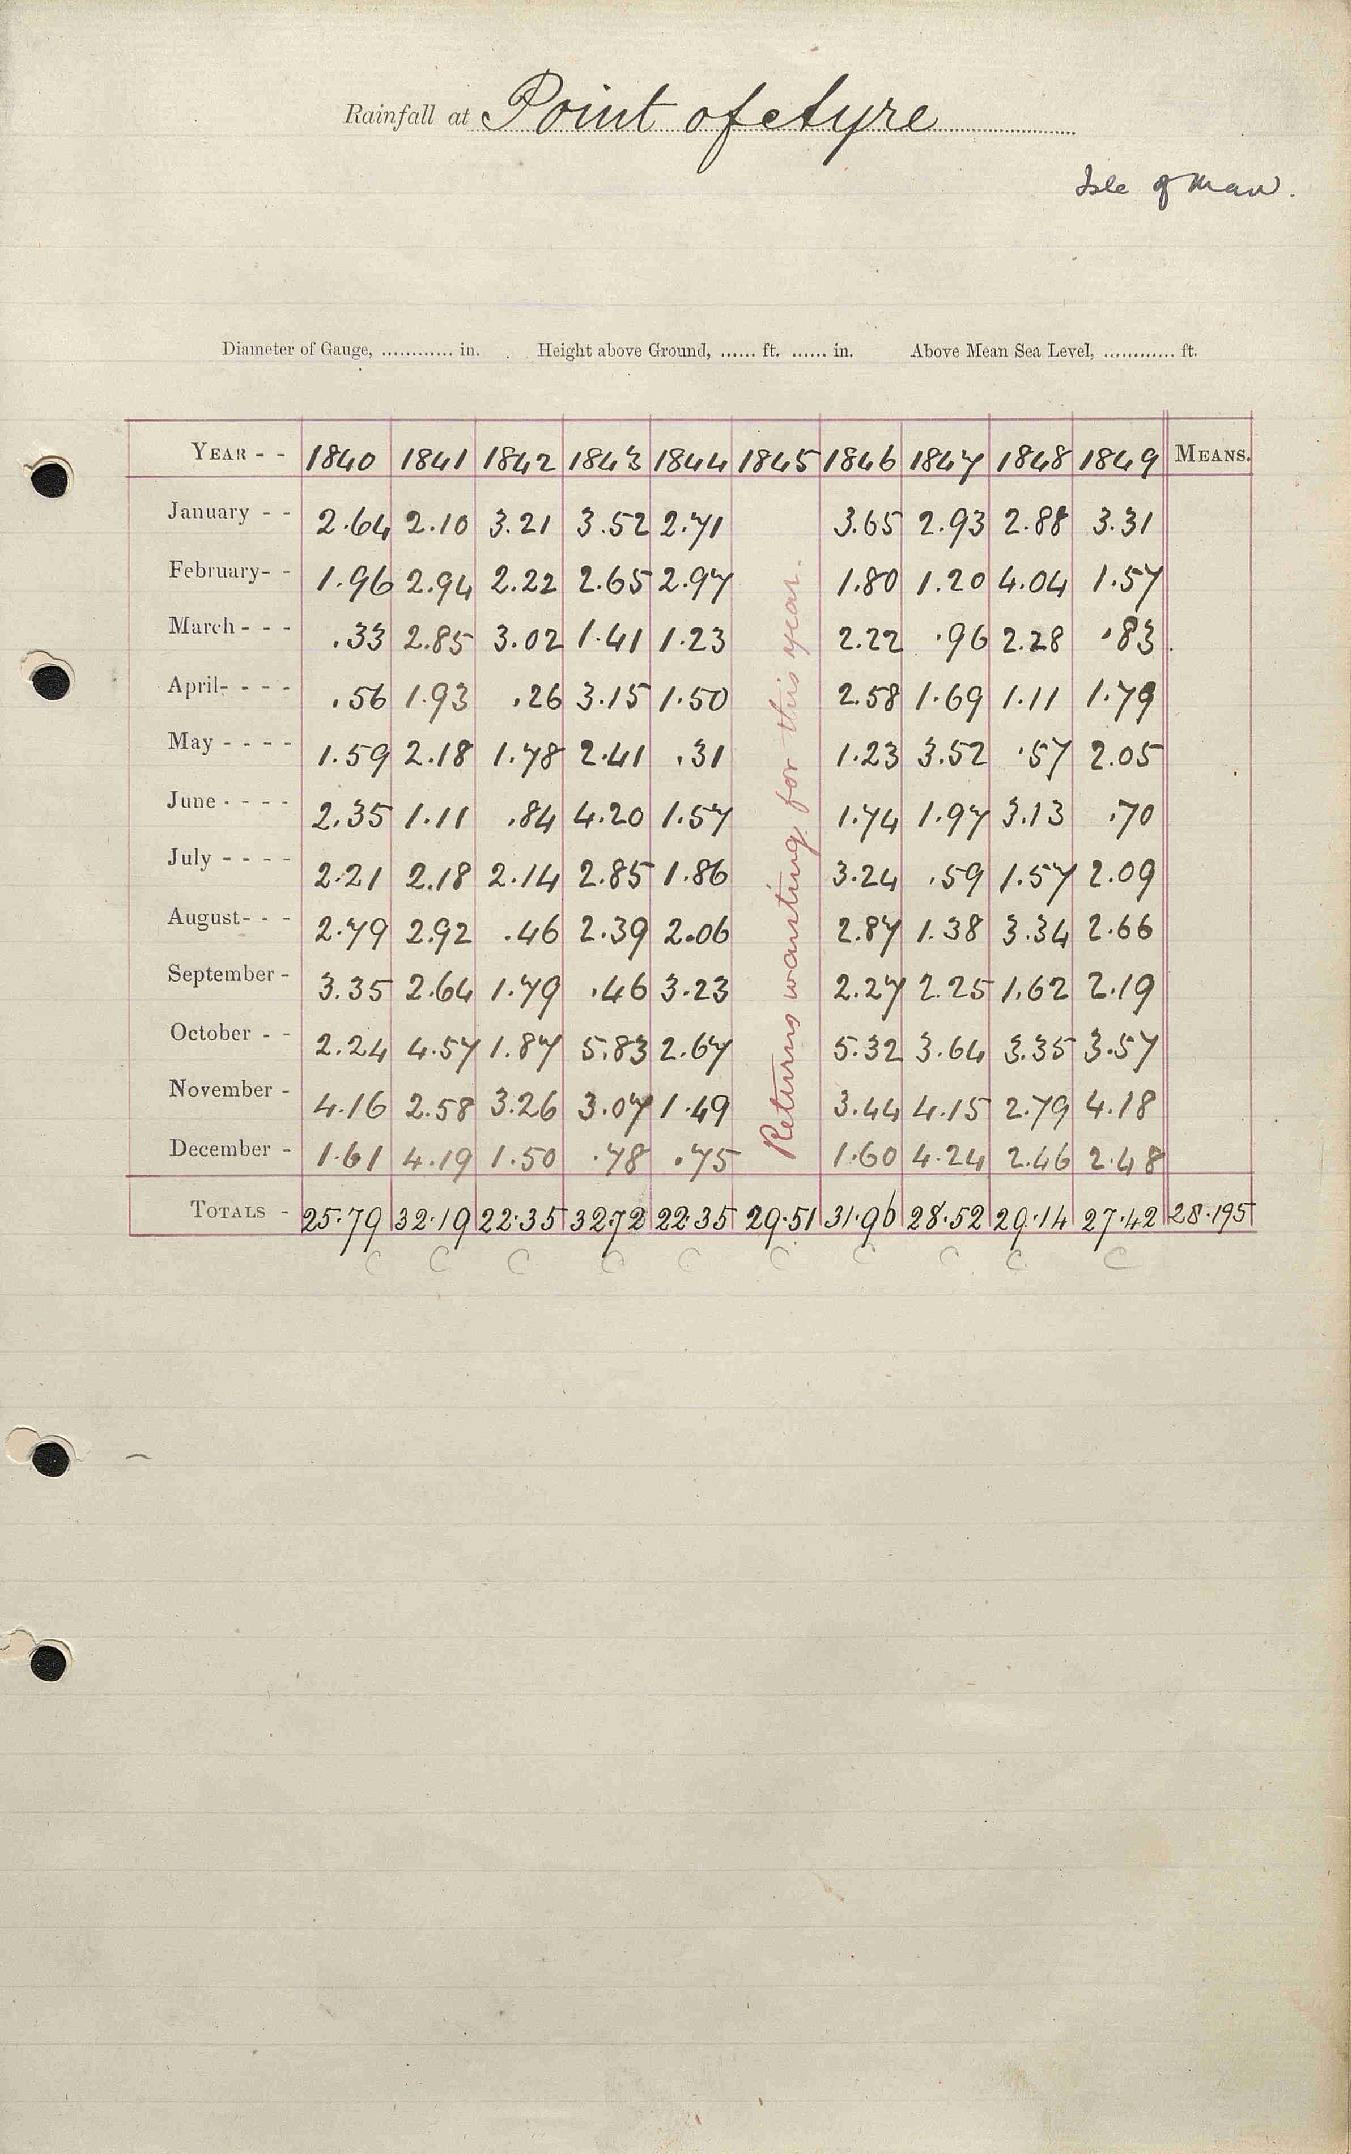 Rainfall at Point of Ayre
Isle of Man.
Diameter of Gauge, ............ in. Height above Ground, ...... ft. ...... in. Above Mean Sea Level, ............ ft.
YEAR - - 1840 1841 1842 1843 1844 1845 1846 1847 1848 1849 MEANS.
January - - 2.64 2.10 3.21 3.52 2.71 3.65 2.93 2.88 3.31
February- - 1.96 2.94 2.22 2.65 2.97 1.80 1.20 4.04 1.57
March - - - .33 2.85 3.02 1.41 1.23 2.22 .96 2.28 .83
April- - - - .56 1.93 .26 3.15 1.50 2.58 1.69 1.11 1.79
May - - - - 1.59 2.18 1.78 2.41 .31 1.23 3.52 .57 2.05
June - - - - 2.35 1.11 .84 4.20 1.57 1.74 1.97 3.13 .70
July - - - - 2.21 2.18 2.14 2.85 1.86 3.24 .59 1.57 2.09
August- - - 2.79 2.92 .46 2.39 2.06 2.87 1.38 3.34 2.66
September - 3.35 2.64 1.79 .46 3.23 2.27 2.25 1.62 2.19
October - - 2.24 4.57 1.87 5.83 2.67 5.32 3.64 3.35 3.57
November - 4.16 2.58 3.26 3.07 1.49 3.44 4.15 2.79 4.18
December - 1.61 4.19 1.50 .78 .75 1.60 4.24 2.46 2.48
TOTALS - 25.79 32.19 22.35 32.72 22.35 29.51 31.96 28.52 29.14 27.42 28.195
C C C C C C C C C C
Returns wanting for this year.